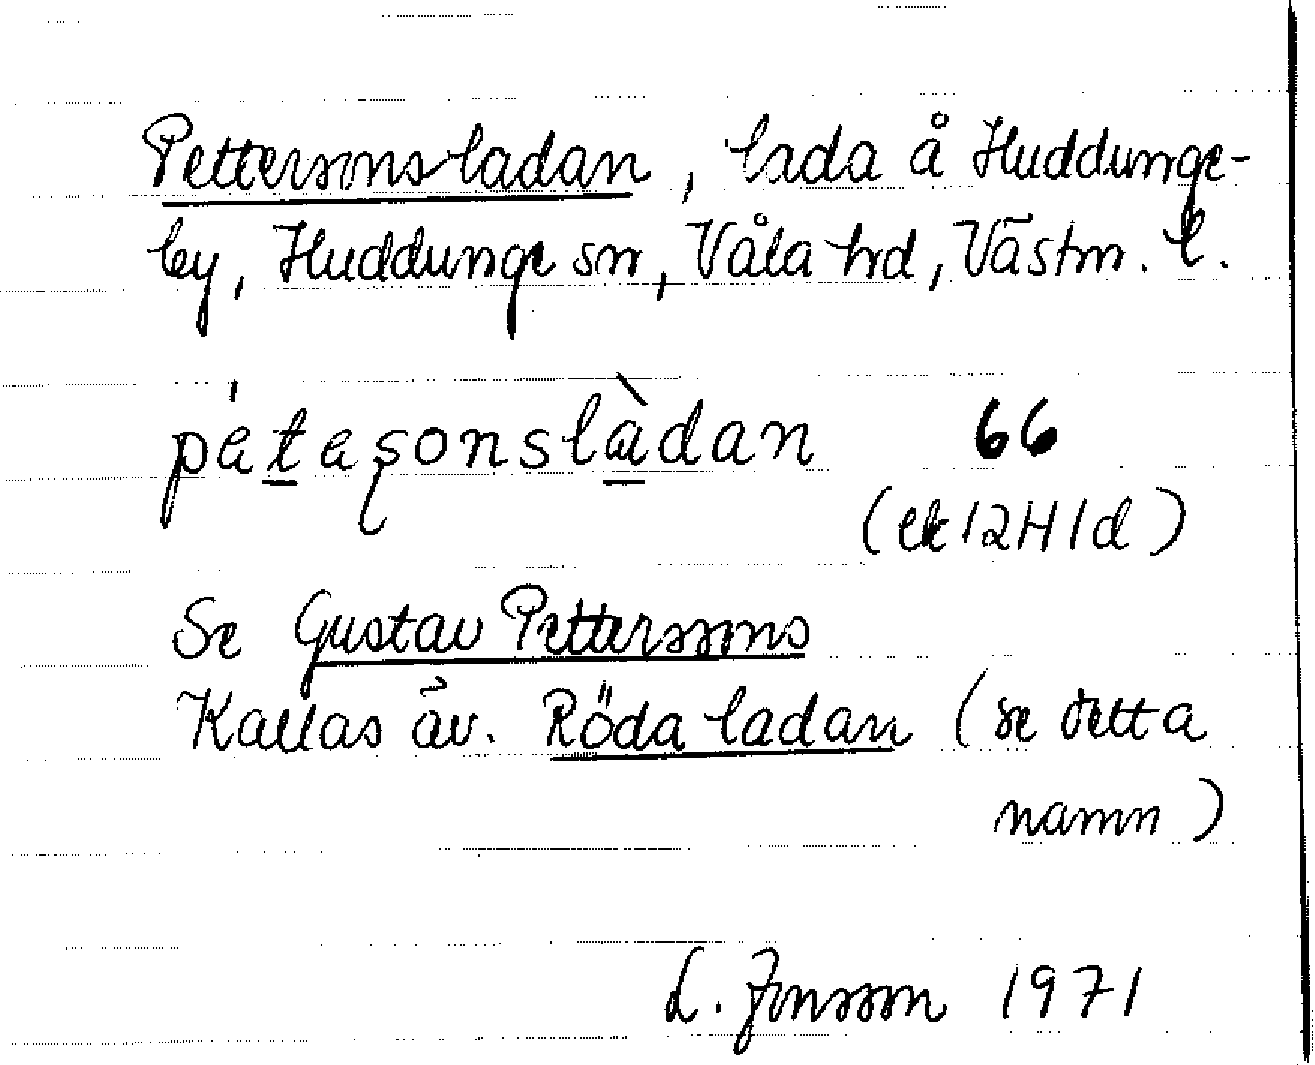 Petterssonsladan, lada å Huddunge-
by, Huddunge sn, Våla hd, Västm. l.
pȧt̲ a̧onslàdan 66
(ek 12H1d)
Se Gustav Petterssons
Kallas äv. Röda ladan (se detta
namn)
L. Jonsson 1971